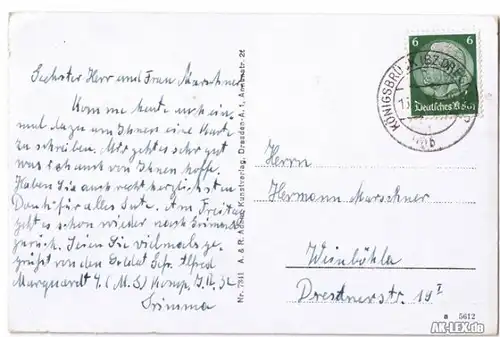 Geehrter Herr und Frau Marschner
Komme heute mich ein-
mal dazu um Ihnen eine Karte
zu schreiben. Mir geht es sehr gut
was ich auch von Ihnen hoffe.
Haben Sie auch recht herzlichsten
Dank für alles Gute. Am Freitag
geht es schon wieder nach Grimma
zurück. Seien Sie vielmals ge-
grüßt von den Soldat Alfred
Marquardt 4. (M.S) Komp.
Grimma
Nr. 7341 A. & R. Kunstverlag, Dresden-A. 1,
6 6
Deutsches Reich
KÖNIGSBRÜCK (BZ DRESDEN)
Herrn
Hermann Marschner
Weinböhla
Dresdnerstr. 19 I
a 5612
AK-LEX.de